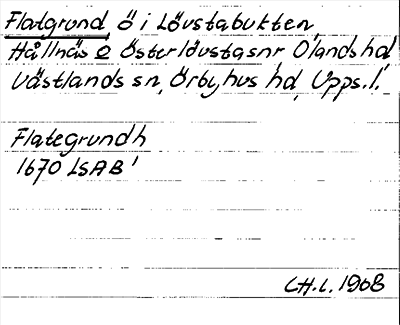 Flatgrund, ö i Lövstabukten,
Hållnäs o Österlövsta snr Olands hd
Västlands sn, Örbyhus hd, Upps. l.
Flategrundh
1670 LSAB
C.H.L. 1908